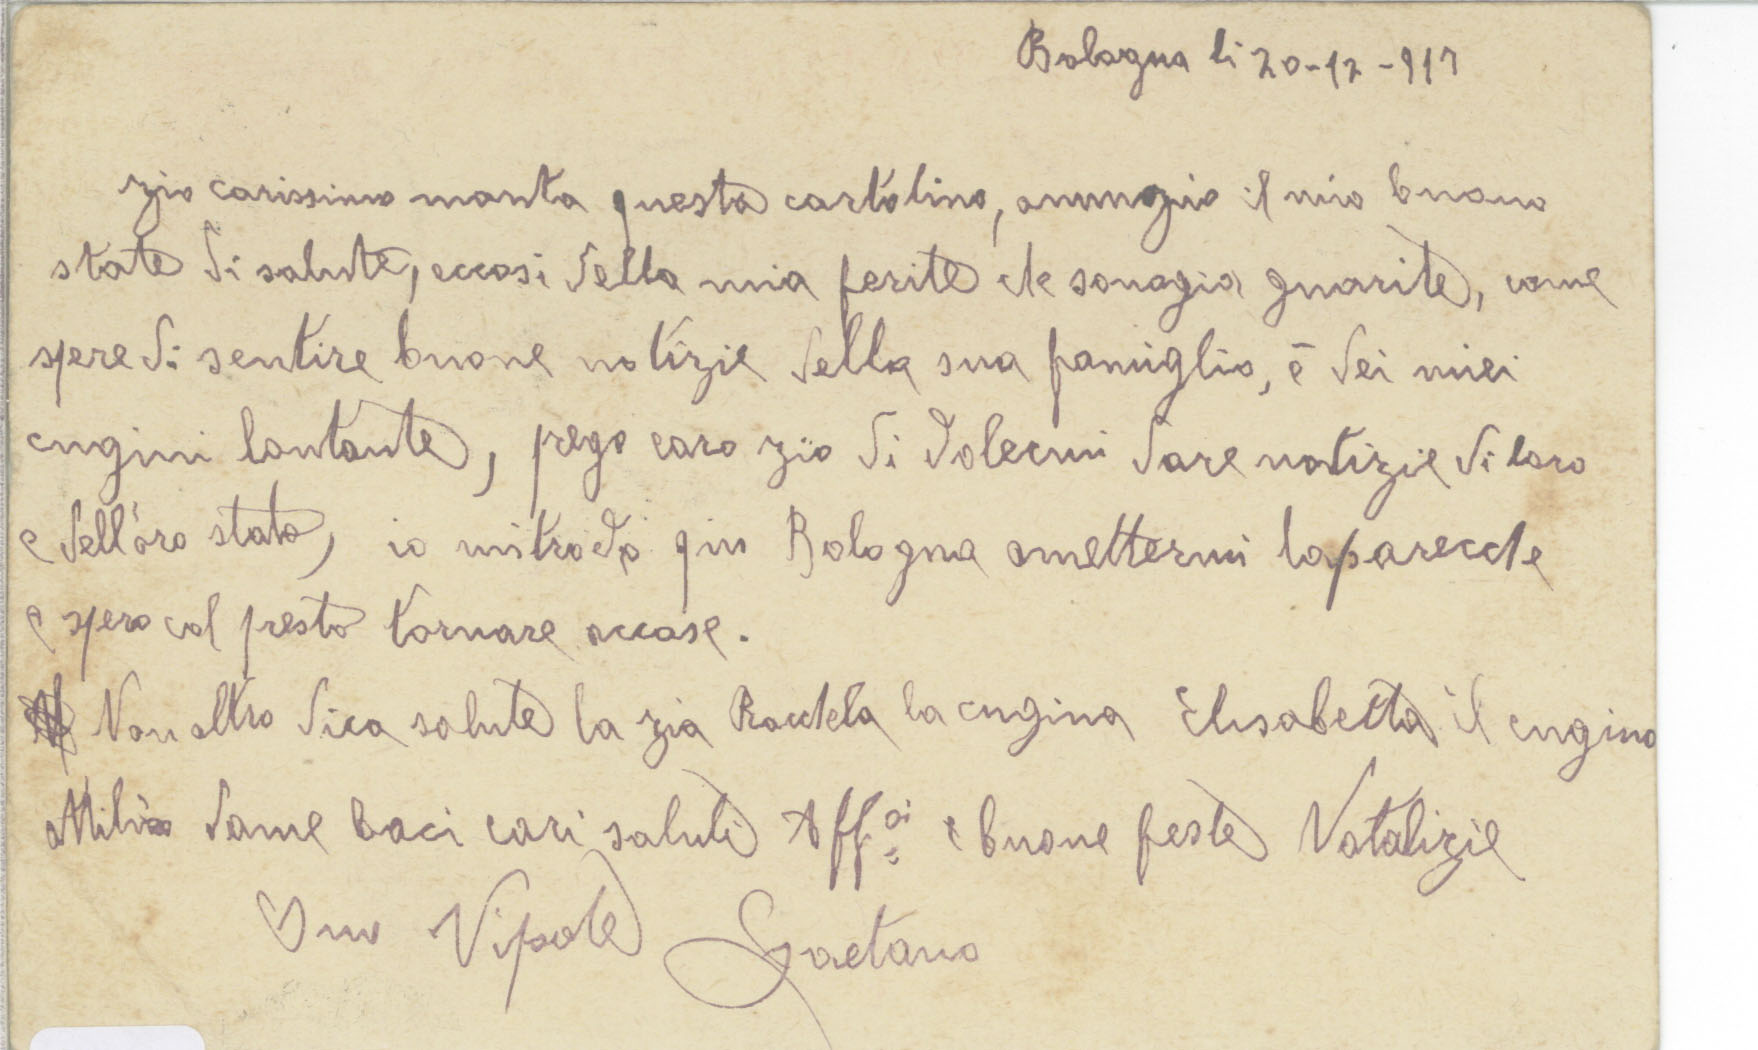 Bologna li 20-12-917
Zio carissimo manta questa cartolina, annunzio il mio buono
state di salute, eccosi della mia ferite che sonagia guarite, come
spere di sentire buone notizie della sua famiglia, e dei miei
cugini lontante, prego caro zio di volermi dare notizie di loro
e dell'oro stato, io mitrovo qui Bologna amettermi laparecche
e spero col presto tornare accase.
Non altro dica salute la zia Racchela la cugina Elisabetta il cugino
Attilio dame baci cari saluti Aff.si e buone feste Natalizie
Suo Nipote Gaetano